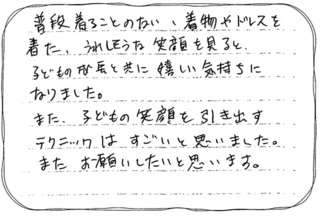 普段着ることのない、着物やドレスを
着た、うれしそうな笑顔を見ると、
子どもの成長と共に嬉しい気持ちに
なりました。
また、子どもの笑顔を引き出す
テクニックはすごいと思いました。
またお願いしたいと思います。